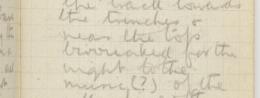 the track towards
the trenches &
near the top
bivouaced for the
night to the
music(?) of the